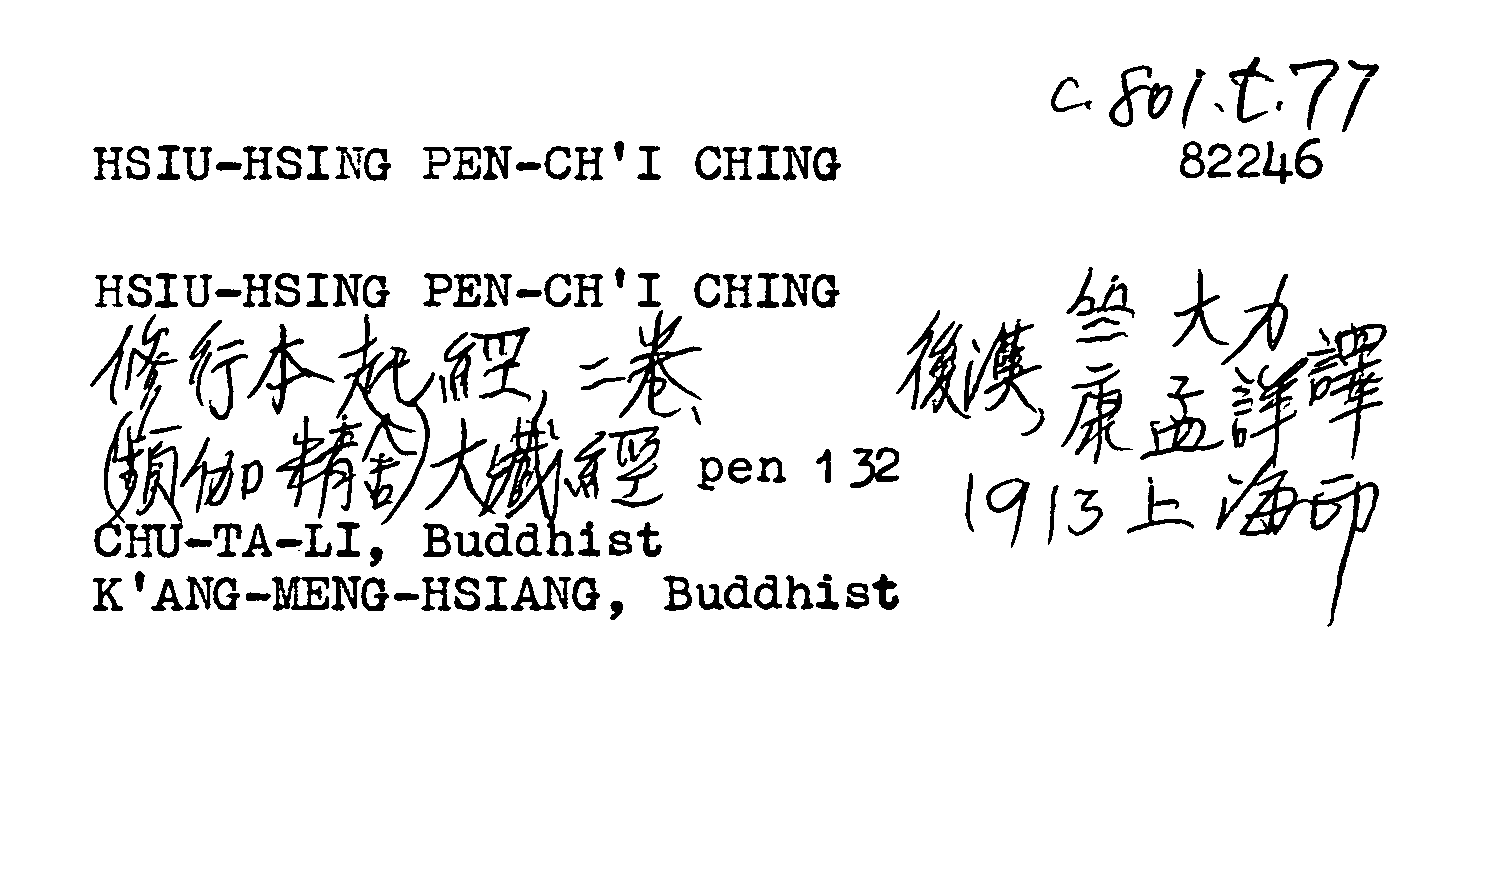 c. 801.t.77
82246
HSIU-HSING PEN-CH'I CHING
HSIU-HSING PEN-CH'I CHING
修行本起經, 二卷、 後漢, 竺大力 康孟詳 譯
(頻伽精舍)大藏經 pen 132 1913上海印
CHU-TA-LI, Buddhist
K'ANG-MENG-HSIANG, Buddhist